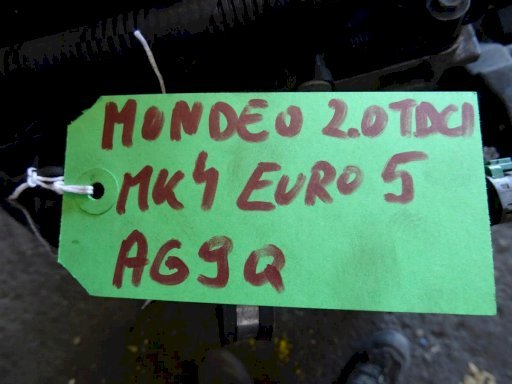 MONDEO 2.0TDCI
MK4 EURO 5
AG9Q